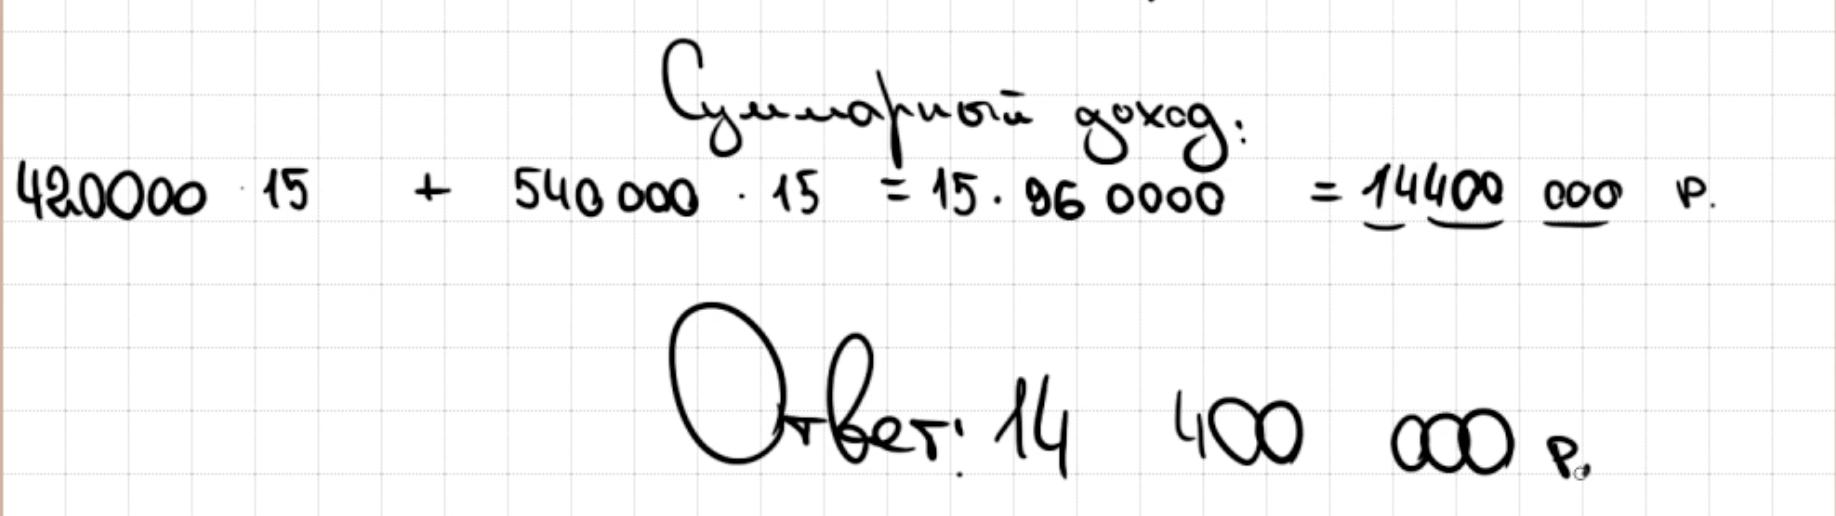 Суммарный доход:
420000 · 15 + 540 000 · 15 = 15 · 960000 = 14400 000 р.
Ответ: 14 400 000 р.